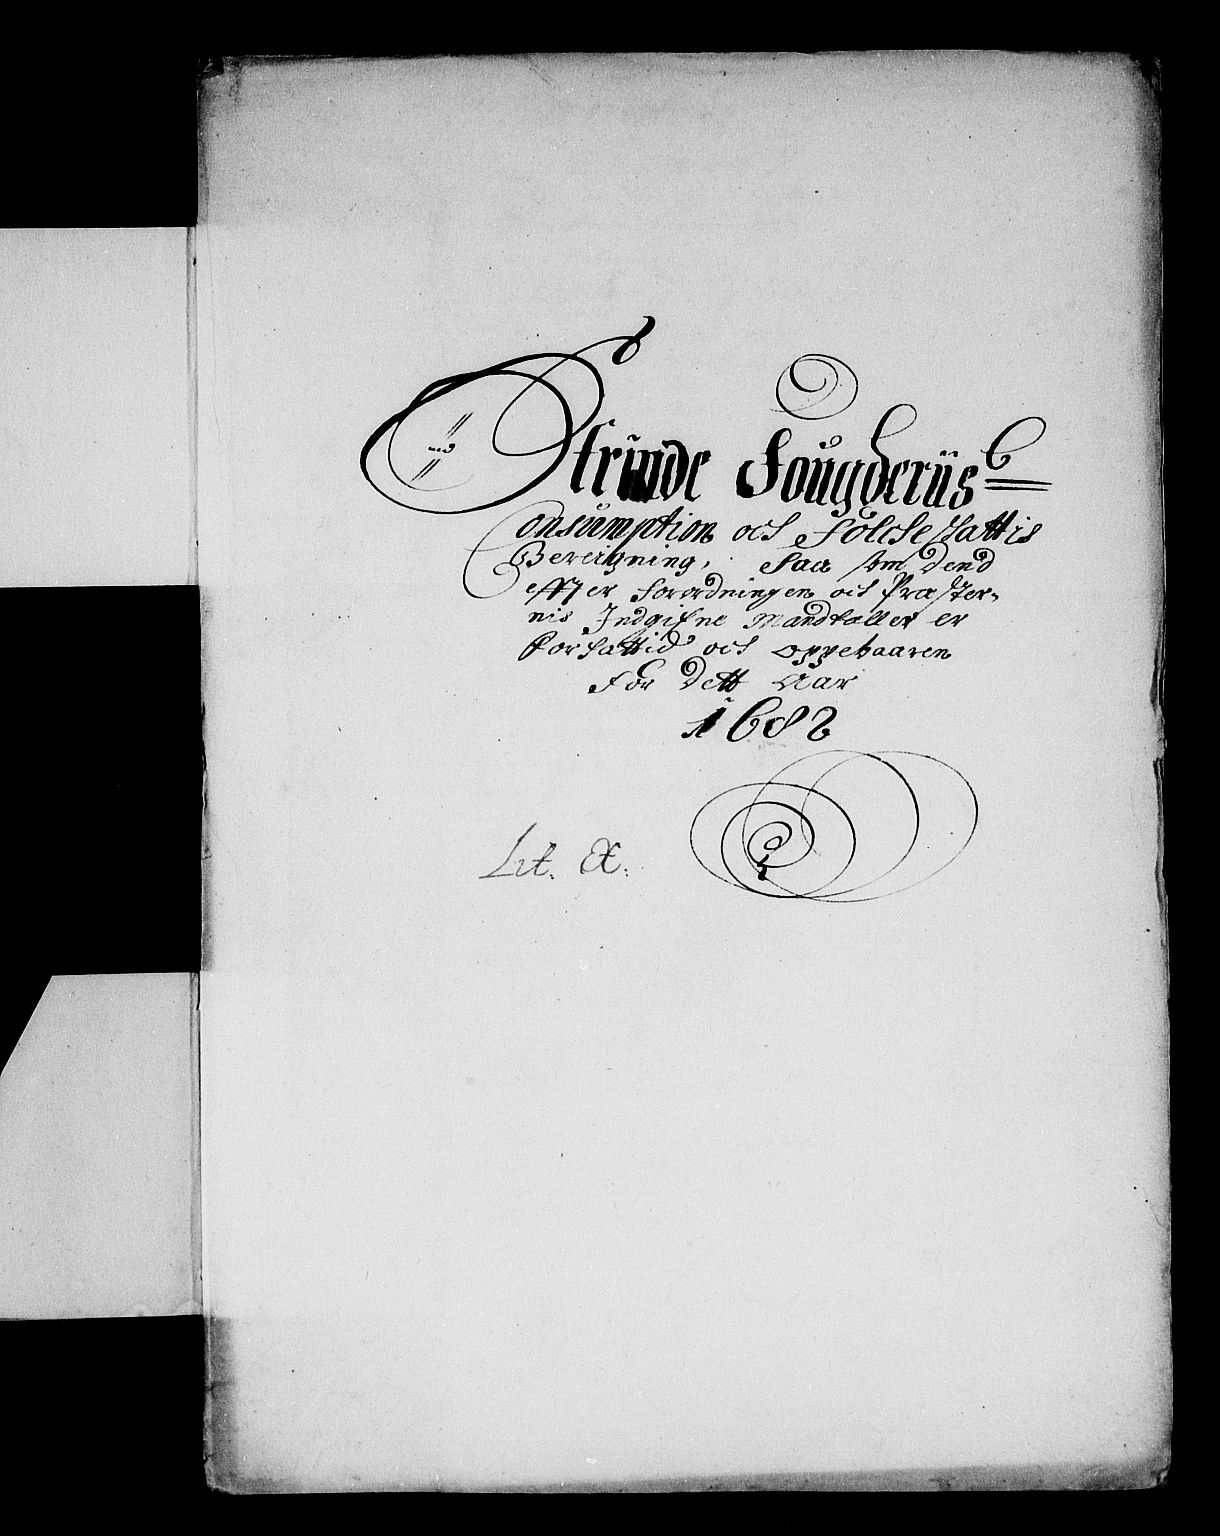 Strinde Fougderiis
Consumption och Folcke skattis
Beregning, Saa som dend
effter forordningen och Præster-
nis Indgifne Mandtaller er
forfattid och oppebaaren
for dett Aar
1682
Lit. X.